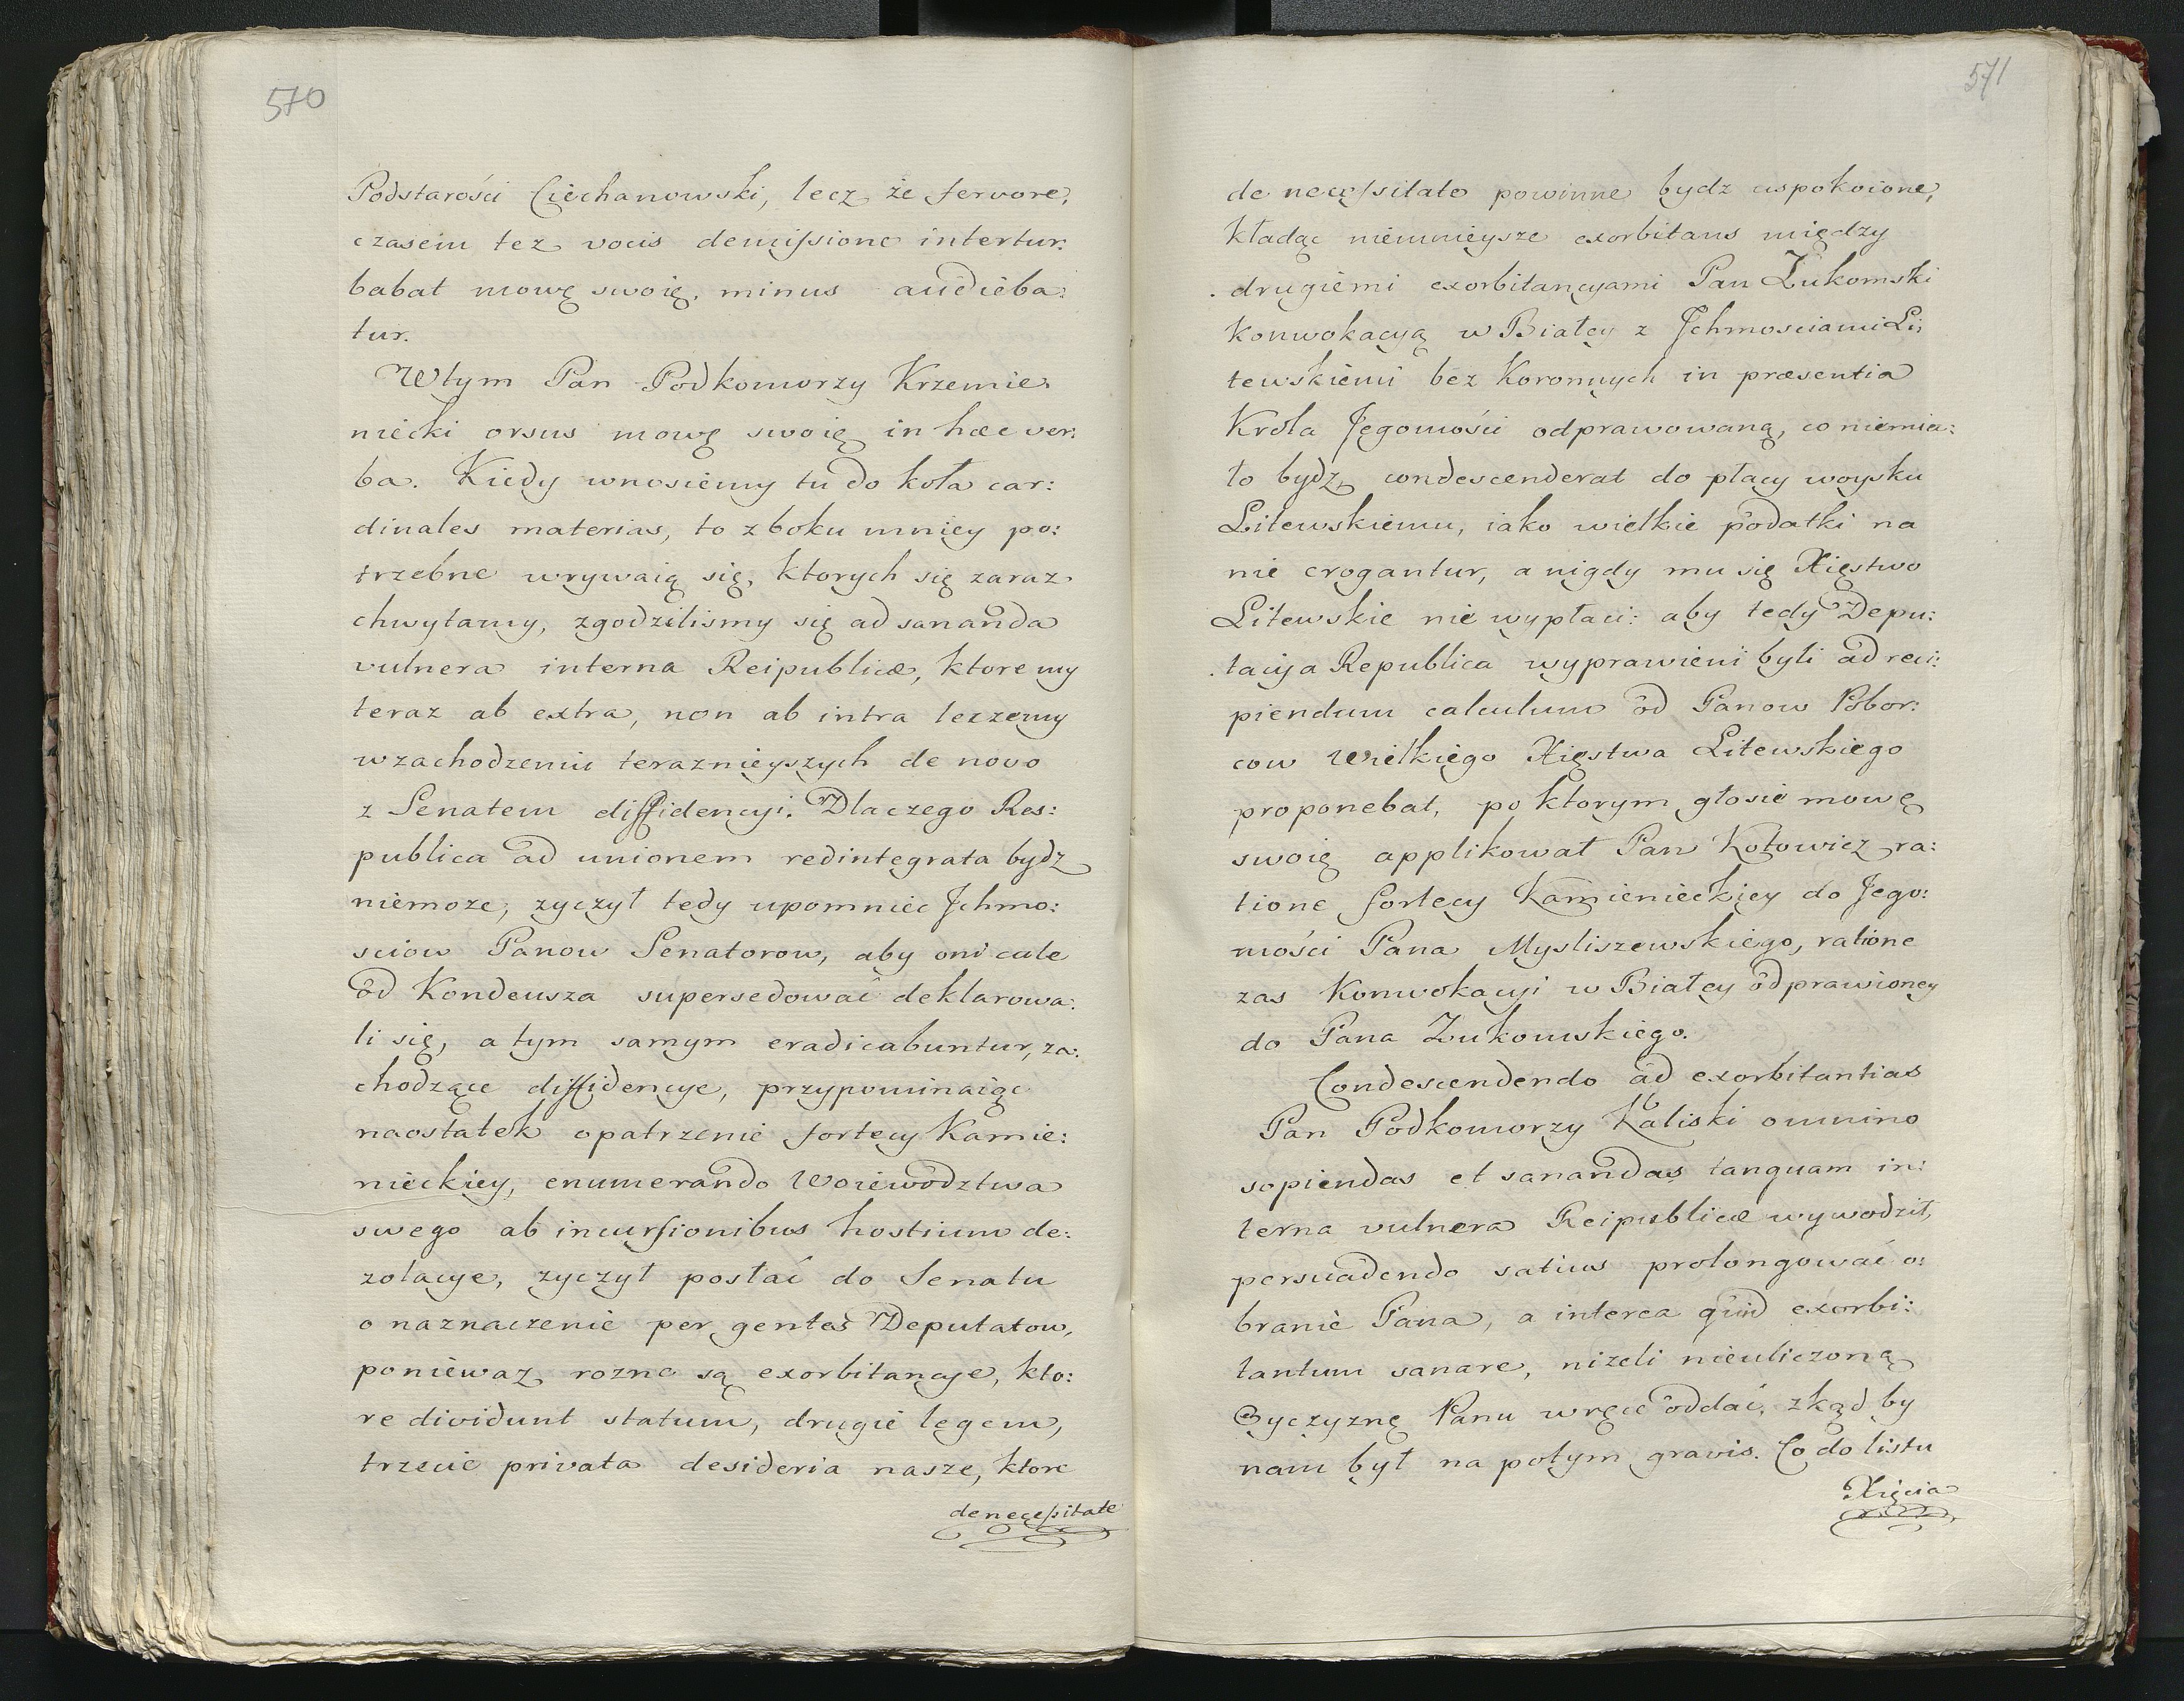 570
Podstarości Ciechanowski, lecz że fervore,
czasem tez vocis demissione intertur:
babat mowę swoię, minus audieba:
tur.
Wtym Pan Podkomorzy Krzemie:
niecki orsus mowę swoię in hæc ver:
ba. Kiedy wnosiemy tu do koła car:
dinales materias, to z boku mniey po:
trzebne wrywaią się, ktorych się zaraz
chwytamy, zgodzilismy się ad sananda
vulnera interna Reipublicæ, ktore my
teraz ab extra, non ab intra leczemy
w zachodzeniu teraznieyszych de novo
z Senatem diffidencyi. Dlaczego Res:
publica ad unionem redintegrata bydz
niemoze, zyczył tedy upomniec Jchmo:
sciow Panow Senatorow, aby oni cale
od Kondeusza supersedować deklarowa:
li się, a tym samym eradicabuntur, za:
chodzące diffidencye, przypominaiąc
naostatek opatrzenie fortecy Kamie:
nieckiey, enumerando Woiewodztwa
swego ab incursionibus hostium de:
zolacye, zyczył posłać do Senatu
o naznaczenie per gentes Deputatow,
poniewaz rozne są exorbitancye, kto:
re dividunt statum, drugie legem,
trzecie privata desideria nasze, ktore
de necessitate
571
de necessitate powinne bydz uspokoione,
kładąc niemnieysze exorbitans między
drugiemi exorbitancyami Pan Zukomski
Konwokacyą w Białey z Jchmosciami Li:
tewskiemi bez Koronnych in præsentia
Krola Jegomości odprawowaną, co niemia:
ło bydz, condescenderat do płacy woysku
Litewskiemu, iako wielkie podatki na
nie erogantur, a nigdy mu się Xięstwo
Litewskie nie wypłaci: aby tedy Depu:
taci a Republica wyprawieni byli ad reci:
piendum calculum od Panow Pobor:
cow Wielkiego Xięstwa Litewskiego
proponebat, po ktorym głosie mowę
swoię applikował Pan Kotowicz ra:
tione fortecy Kamienieckiey do Jego:
mości Pana Mysliszewskiego, ratione
zas Konwokacyi w Białey odprawioney
do Pana Zukomskiego.
Condescendendo ad exorbitantias
Pan Podkomorzy Kaliski omnino
sopiendas et sanandas tanquam in:
terna vulnera Reipublicæ wywodził,
persuadendo satius prolongować o:
branie Pana, a interea quid exorbi:
tantum sanare, nizeli nieuliczoną
Oyczyznę Panu wręce oddać, zkąd by
nam był na potym gravis. Co do listu
Xięcia